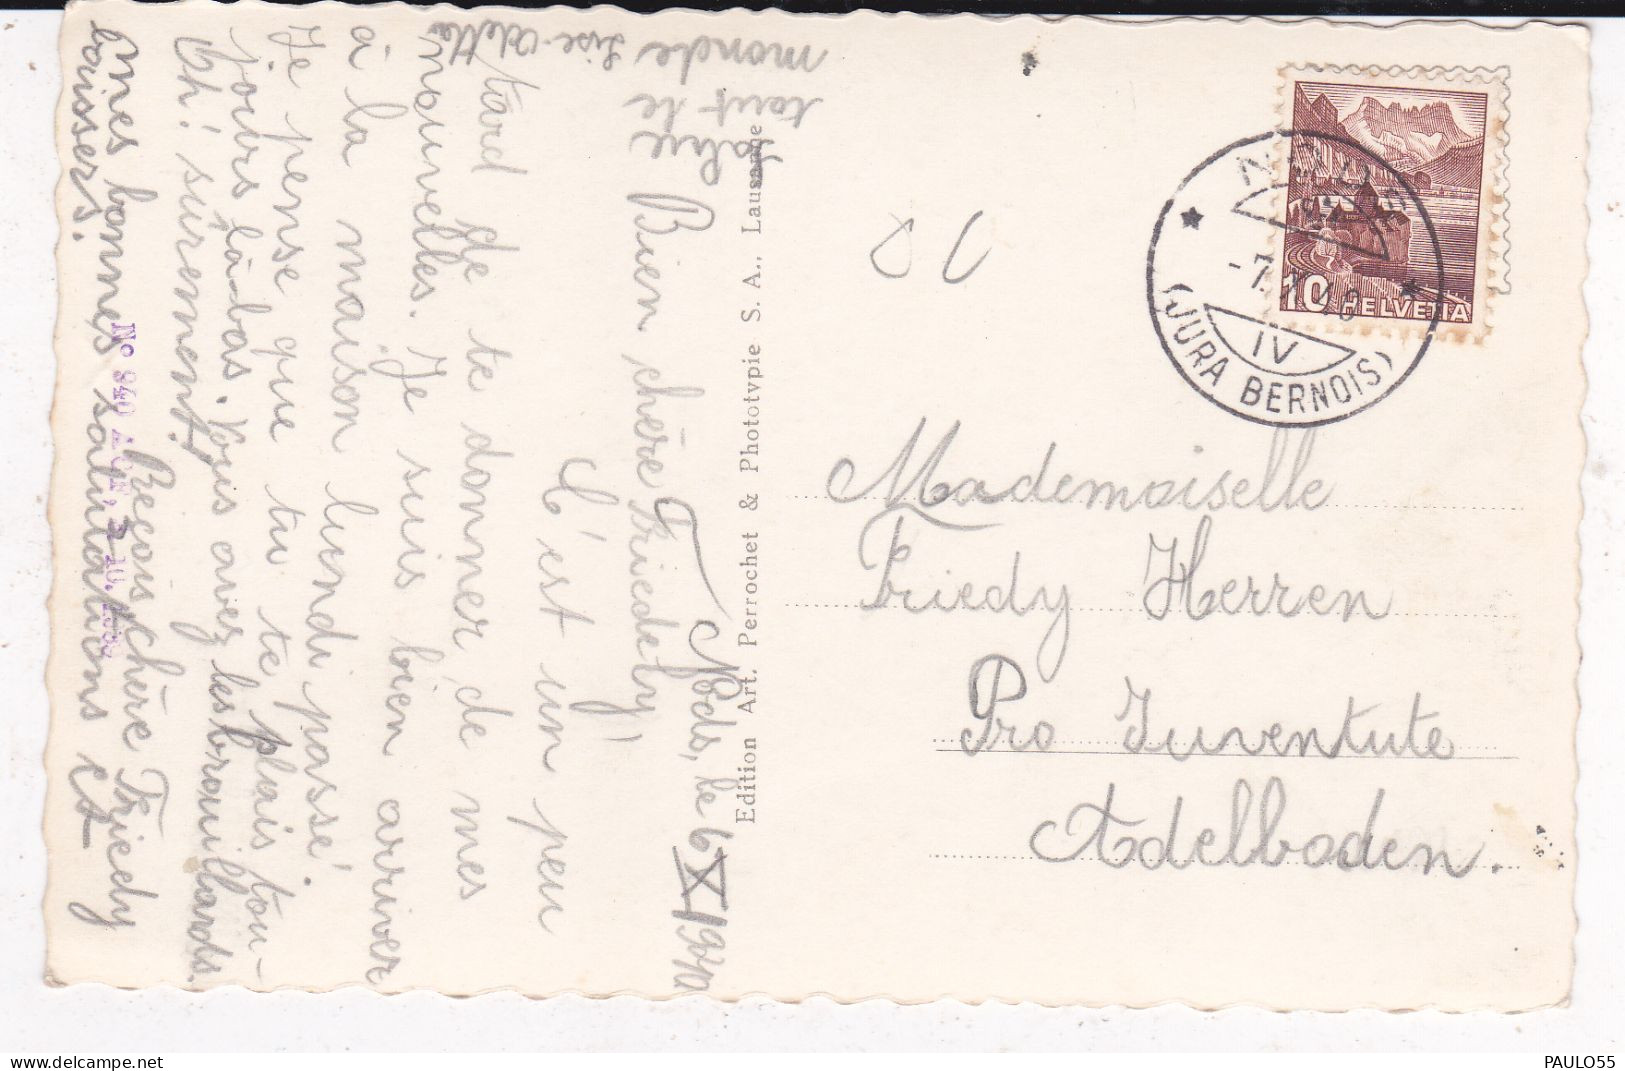 Nods, le 6 XI 1940
Bien chère Friedely!
C'est un peu
tard de te donner de mes
nouvelles. Je suis bien arriver
à la maison lundi passé.
Je pense que tu te plais tou-
jours là-bas. Vous avez les brouillards.
Oh! sûrement!
Reçois chère Friedy
mes bonnes salutations et
baissers.
Salue
tout le
monde Lise-Odette
No 940
Edition Art. Perrochet & Phototypie S. A., Lausanne
NODS
IV
(JURA BERNOIS)
10 HELVETIA
Mademoiselle
Friedy Herren
Pro Juventute
Adelboden.
PAULO55